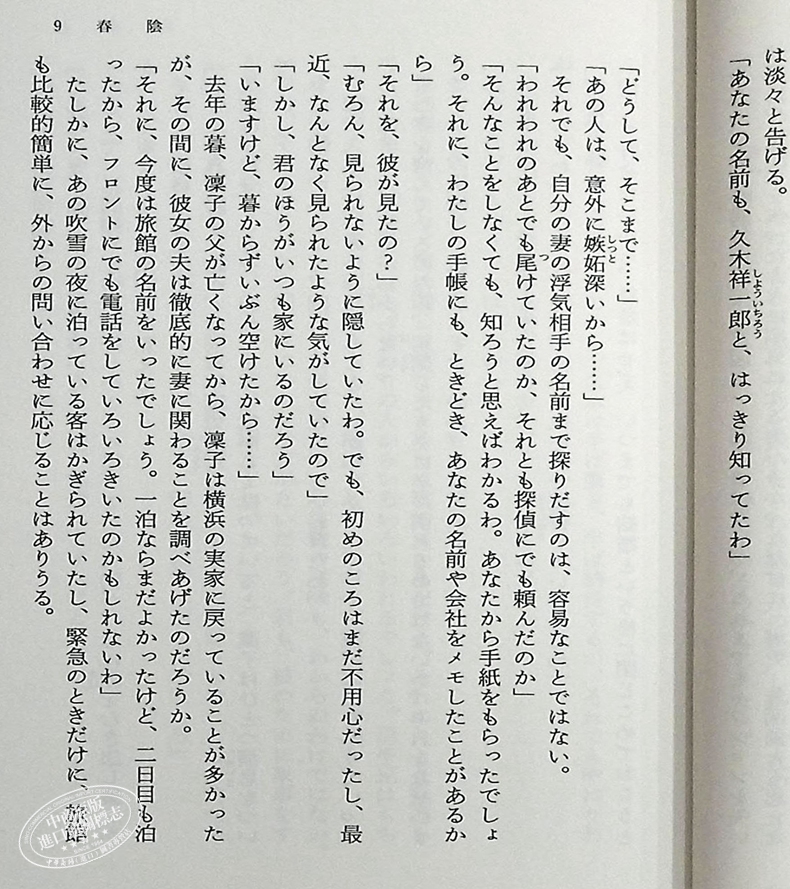 は淡々と告げる。
「あなたの名前も、久木祥一郎と、はっきり知ってたわ」
しょういちろう
9 春陰
「どうして、そこまで……」
「あの人は、意外に嫉妬深いから……」
しっと
それでも、自分の妻の浮気相手の名前まで探りだすのは、容易なことではない。
「われわれのあとでも尾けていたのか、それとも探偵にでも頼んだのか」
つ
「そんなことをしなくても、知ろうと思えばわかるわ。あなたから手紙をもらったでしょ
う。それに、わたしの手帳にも、ときどき、あなたの名前や会社をメモしたことがあるか
ら」
「それを、彼が見たの？」
「むろん、見られないように隠していたわ。でも、初めのころはまだ不用心だったし、最
近、なんとなく見られたような気がしていたので」
「しかし、君のほうがいつも家にいるのだろう」
「いますけど、暮からずいぶん空けたから……」
去年の暮、凜子の父が亡くなってから、凜子は横浜の実家に戻っていることが多かった
が、その間に、彼女の夫は徹底的に妻に関わることを調べあげたのだろうか。
「それに、今度は旅館の名前をいったでしょう。一泊ならまだよかったけど、二日目も泊
ったから、フロントにでも電話をしていろいろきいたのかもしれないわ」
たしかに、あの吹雪の夜に泊っている客はかぎられていたし、緊急のときだけに、旅館
も比較的簡単に、外からの問い合わせに応じることはありうる。
中商出版
進口圖書標志